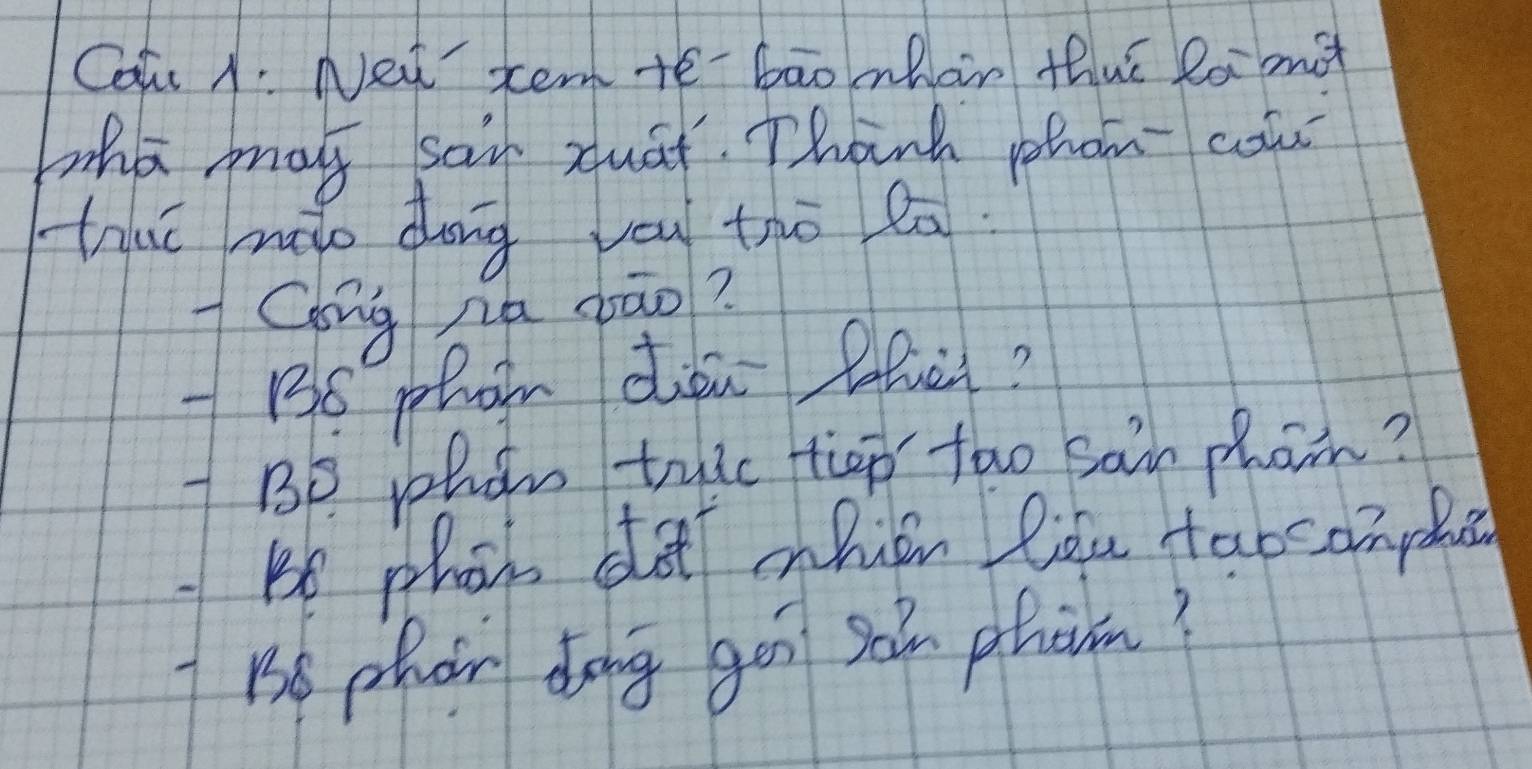 Câu 1: Nếu xem tế bào nhân thực là một
nhà máy sản xuất. Thành phần cấu
trúc nào đóng vai trò là:
- Cổng ra vào?
- Bộ phận điều khiển?
- Bộ phận trực tiếp tạo sản phẩm?
- Bộ phận đốt nhiên liệu tạo sản phẩm
- Bộ phận đóng gói sản phẩm?